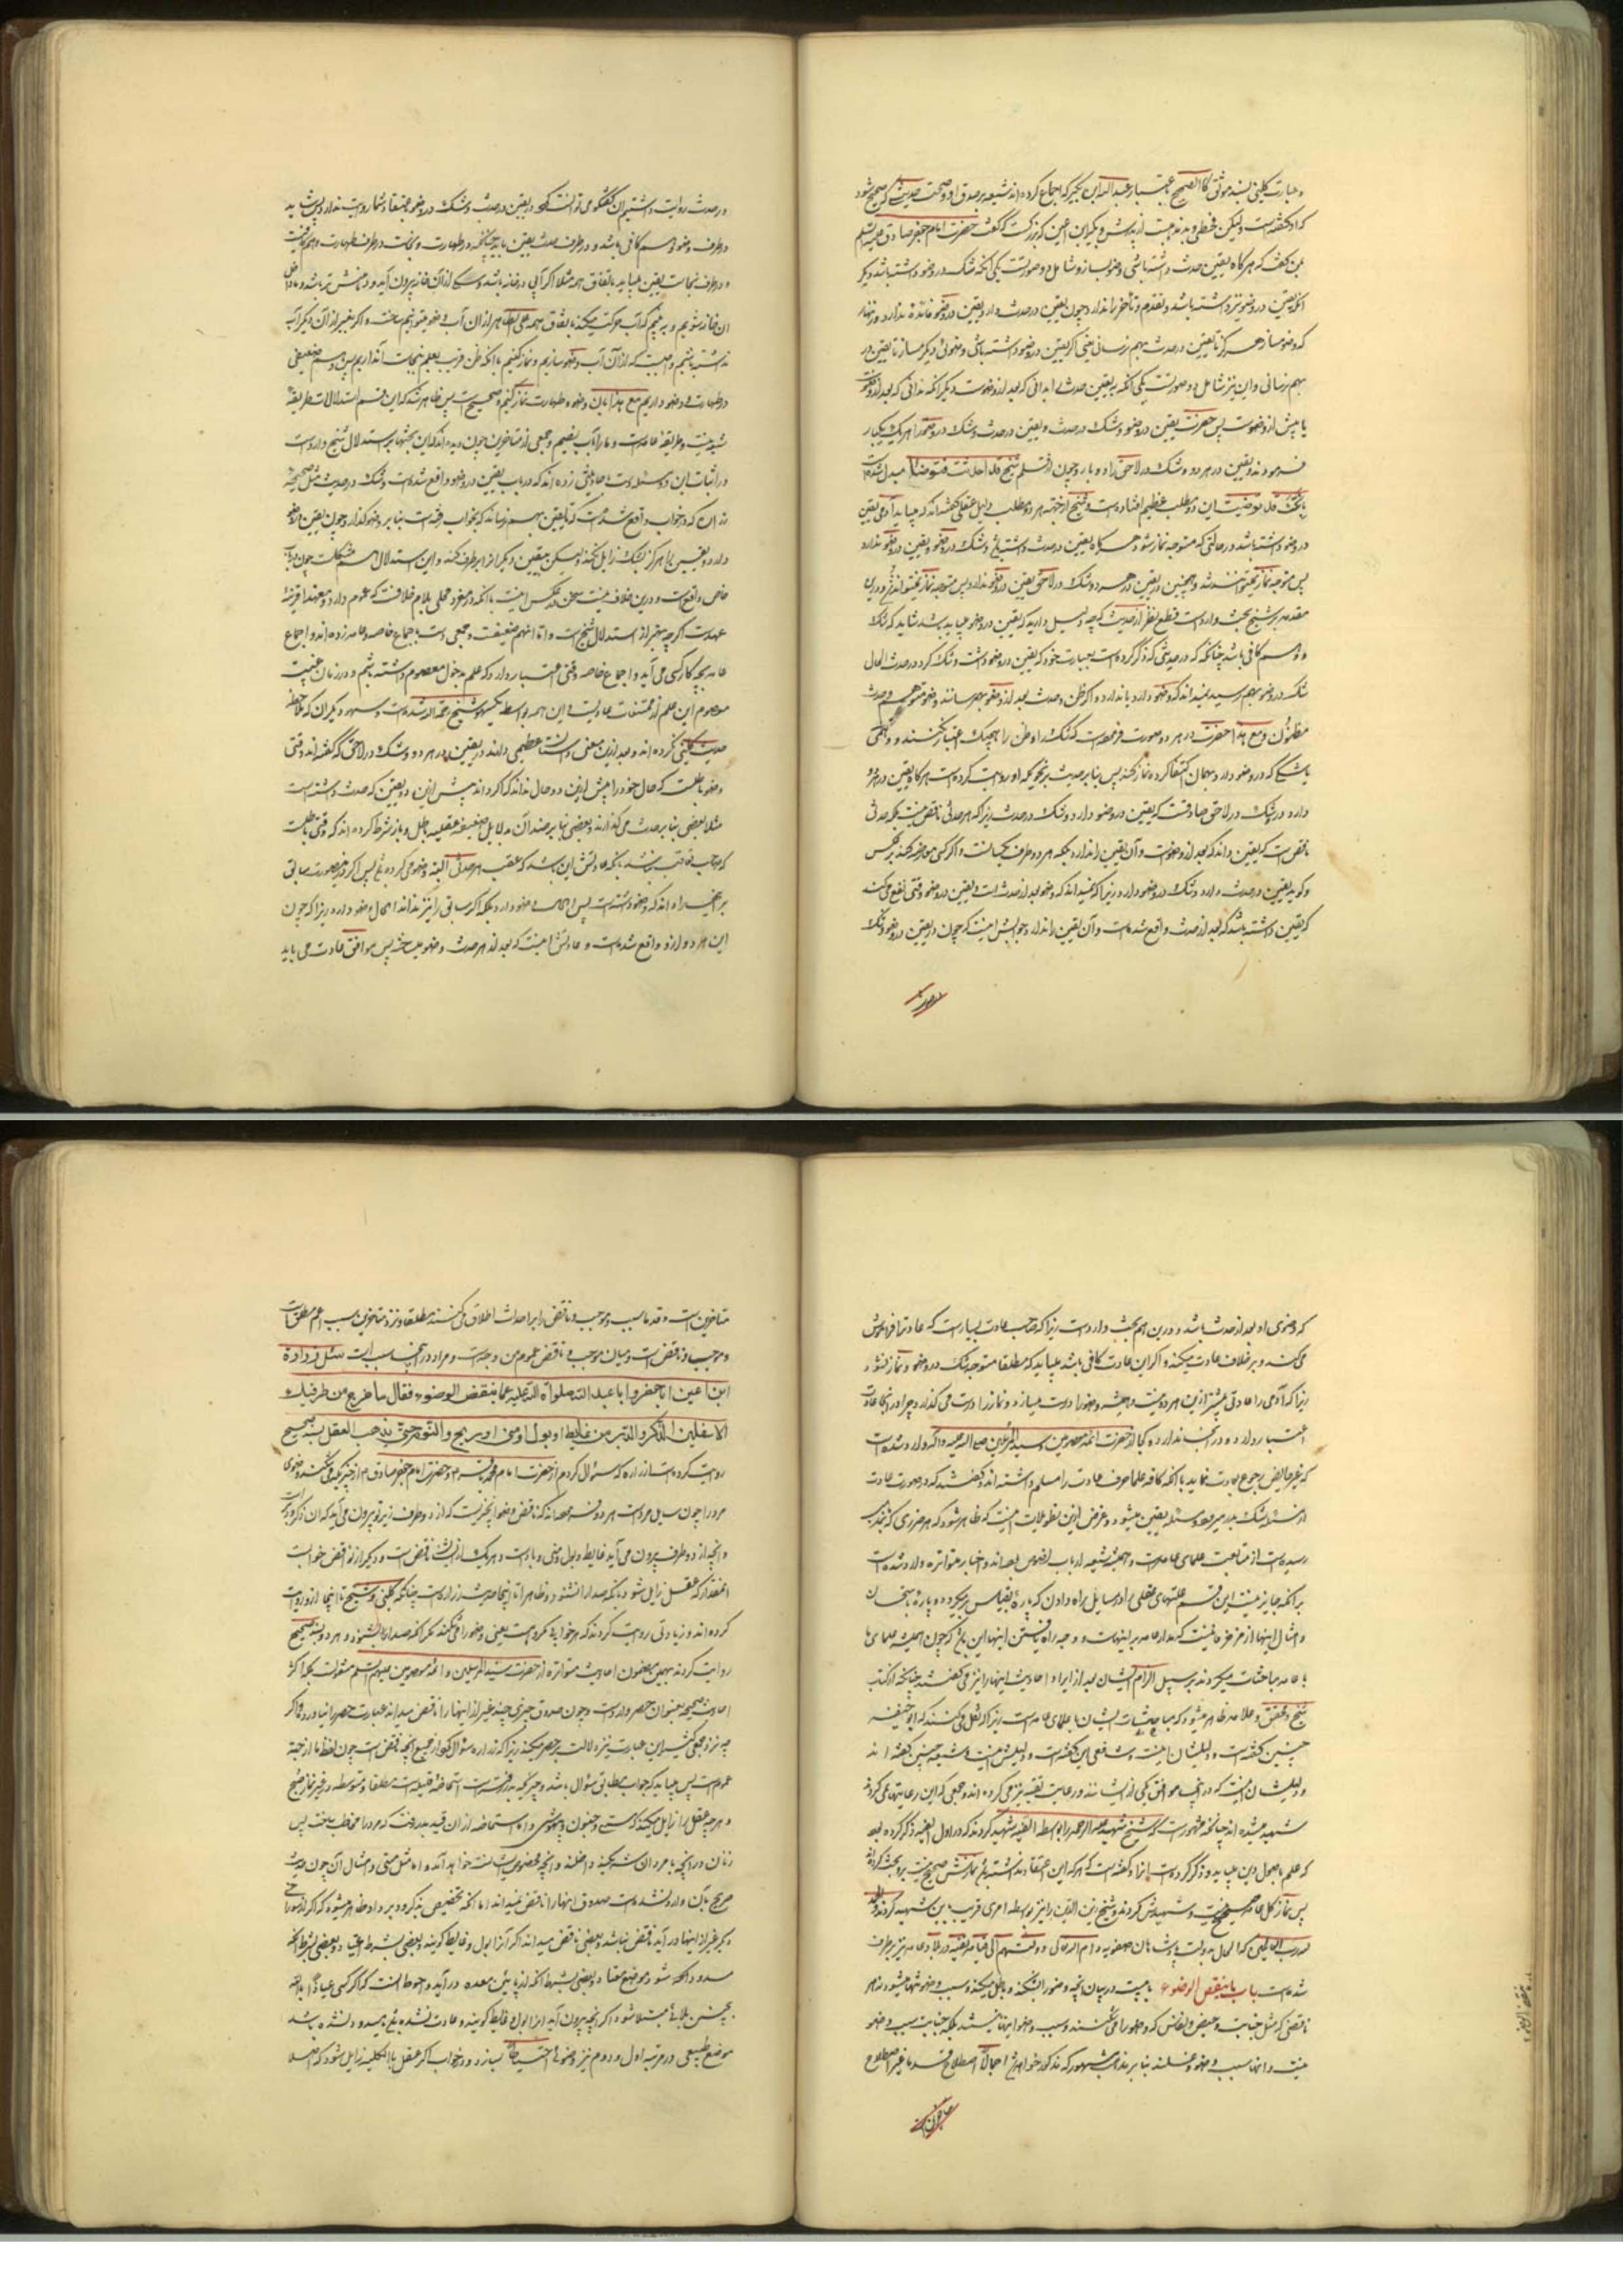 و عبارت کلینی بسند موثق کالصحیح باعتبار عبدالله بن بکیر که اجماع کرده‌اند شیعه بر صدق او و صحت حدیثی که صحیح شود
که او گفته است ولیکن فطحی بد مذهبست از پدرش بکیر بن اعین که بزرگست که گفت حضرت امام جعفر صادق علیه السلم
بمن گفت که هر گاه یقین بحدث داشته باشی وضو بساز و شامل دو صورتست یکی آنکه شک در وضو داشته باشد و دیگر
آنکه یقین در وضو نیز داشته باشد و تقدم و تأخر را نداند چون یقین در حدث دارد و یقین در وضو فائده ندارد و زنهار
که وضو مساز هرگز تا یقین در حدث بهم رسانی یعنی اگر یقین در وضو داشته باشی وضوئی دیگر مساز تا یقین در حدث
بهم رسانی و این نیز شامل دو صورتست یکی آنکه یقین حدثی را بدانی که بعد از وضوست و دیگر آنکه ندانی که بعد از وضوست
یا پیش از وضوست پس حضرت یقین در وضو و شک در حدث و یقین در حدث و شک در وضو را هر یک یکبار
فرمودند و یقین در هر دو و شک در لاحق را دو بار و چون از قلم شیخ قد احدثت فتوضأ مبدل شده است
بانک قد توضیت این دو مطلب عظیم افتاده است و شیخ از جهة هر دو مطلب دلیل عقلی گفته‌اند که میباید آدمی یقین
در وضو داشته باشد در حالتی که متوجه نماز شود و هر گاه یقین در حدث داشته باشد و شک در وضو یقین در وضو ندارد
پس متوجه نماز نمیتواند شد و همچنین در یقین در هر دو و شک در لاحق یقین در وضو ندارد پس متوجه نماز نمیتواند شد و درین
مقدمه بر شیخ بحث وارد است قطع نظر از حدیث که چه دلیل دارید که یقین در وضو میباید باشد شاید که شک
و وهم کافی باشد چنانکه در حدیثی که ذکر کرده است بعبارت خود که یقین در وضو داشت و شک کرد در حدث الحال
شک در وضو بهم رسید نمیداند که وضو دارد یا ندارد و اگر ظن بحدث بعد از وضو بهم رسانند وضو متوهم است و حدث
مظنون و مع هذا حضرت در هر دو صورت فرموده است که شک را و ظن را بهیچیک اعتبار نکنند
با شکی که در وضو دارد بهمان اکتفا کرده نماز کند پس بنا بر حدیث بر نحویکه او روایت کرده است هر گاه یقین در هر دو
دارد و در شک در لاحق صادقست که یقین در وضو دارد و شک در حدث زیرا که هر حدثی ناقض نیست بلکه حدثی
ناقض است که یقین داند که بعد از وضوست و آن یقین را ندارد بلکه هر دو طرف یکسانست و اگر کسی معارضه کند بر عکس
و گوید یقین در حدث دارد و شک در وضو دارد زیرا که نمیداند که وضو بعد از حدث است و یقین در وضو وقتی نفع میکند
که یقین داشته باشد که بعد از حدث واقع شده است و آن یقین را ندارد جوابش اینست که چون در یقین در وضو و شک
در حدث
در حدث روایت داشتیم این گفتگو می توانست کرد و در یقین در حدث و شک در وضو باعتقاد شما روایت ندارد پس شاید
در طرف وضو وهم کافی باشد و در طرف حدث یقین باید چنانکه در طهارت و نجاست در طرف طهارت وهم کافیست
و در طرف نجاست یقین میباید باتفاق همه مثلا اگر آبی در خانه باشد و سگی از آن خانه بیرون آید و دهنش تر باشد و ما داخل
آن خانه شویم و به بینیم که آب حرکت میکند باتفاق همه علی الظاهر از آن آب وضو میتوانیم ساخت و اگر بغیر از آن دیگر آب
نداشته باشیم واجبست که از آن آب وضو سازیم و نماز کنیم با آنکه ظن قریب بعلم بنجاست آن داریم پس وهم ضعیفی
در طهارت وضو داریم مع هذا بآن وضو و طهارت نماز کنیم و صحیح است پس ظاهر شد که این قسم استدلالات طریقهٔ
شیعه نیست و طریقهٔ عامه است
در اثبات این دو مسئله دست باحادیثی زده‌اند که در باب یقین در وضو واقع شده است و شک در حدث مثل صحیحهٔ
زراره که در خواب واقع شده است که تا یقین بهم نرساند که بخواب رفته است بنا بر وضو گذارد چون یقین در وضو
دارد و یقین را هرگز بشک زایل نکند و لیکن بیقین دیگر آنرا برطرف کند و این استدلال هم مشکلست چون در باب
خاص واقعست و درین خلاف نیست سخن در عکس اینست با آنکه در مفرد محلی بلام خلافست که عموم دارد و معهذا قرینهٔ
عهد است اگر چه بهتر از استدلال شیخ است و اما آن هم ضعیفست و جمعی دست باجماع خاصه و عامه زده‌اند و اجماع
عامه بچه کار کسی می آید و اجماع خاصه وقتی اعتبار دارد که علم بدخول معصوم داشته باشیم و در زمان غیبت
معصوم این علم از ممتنعات عادیست و این همه بواسطه یکسهو شیخ رحمه الله شده است و سهو دیگران که ملاحظهٔ
حدیث کلینی نکرده‌اند و بعد از این معنی دانستنی است عظیمی دانند در یقین در هر دو و شک در لاحق که گفته‌اند وقتی
وضو باطلست که حال خود را پیش ازین دو حال نداند که اگر داند پیش ازین دو یقین که حدث داشته است
مثلا بعضی بنا بر حدث می گذارند و بعضی بنا بر ضد آن بدلایل ضعیفهٔ عقلیهٔ باطل و باز شرط کرده‌اند که وقتی باطلست
که صاحب عادت نباشد بآنکه عادتش این باشد که عقب هر حدثی البته وضو می کرده باشد پس اگر در صورت سابق
این هر دو از او واقع شده است و عادتش اینست که بعد از هر حدث وضو میساخته پس موافق عادت می باید
که وضوی او بعد از حدث باشد و درین هم بحث وارد است زیرا که صاحب عادت بسیار است که عادترا فراموش
می کند و بر خلاف عادت میکند و اگر این عادت کافی باشد میباید که مطلقا متوجه شک در وضو و نماز نشود
زیرا که آدمی را عادتی بیشتر ازین هر دو نیست و همیشه وضو را درست میسازد و نماز را درست می گذارد چرا در آنجا عادت
اعتبار دارد و در آنجا ندارد و کجا از حضرت ائمه معصومین و سید المرسلین صلی الله علیه و آله وارد شده است
که غیر حایض رجوع بعادت نماید با آنکه کافهٔ علما حرف عادت را مسلم داشته‌اند و گفته‌اند که در صورت عادت
از مسئلهٔ شک بدر میرود و مسئلهٔ یقین میشود و غرض ازین تطویلات اینست که ظاهر شود که هر ضرری که بمذهب
رسیده است از متابعت علمای عامه است و همیشه شیعه ارباب نصوص بوده‌اند و اخبار متواتره وارد شده است
بر آنکه جایز نیست این قسم علتهای عقلی را در مسایل راه دادن که پارهٔ بقیاس بر میگردد و پارهٔ باستحسان
و امثال اینها از مزخرفات نیست که مدار عامه بر اینهاست و وجه راه یافتن اینها این باشد که چون همیشه علمای ما
با عامه مباحثات میکردند بر سبیل الزام ایشان بعد از ایراد احادیث اینها را نیز می گفتند چنانکه از کتب
شیخ و محقق و علامه ظاهر میشود که مباحثات ایشان با علمای عامه است زیرا که نقل می کنند که ابو حنیفه
چنین گفته است و دلیلشان اینست و شافعی این گفته است و دلیلش اینست و شیعه چنین گفته‌اند
و دلیلشان اینست که در آنجا موافق یکی از ایشانند و رعایت تقیه نیز می کرده‌اند و جمعی که این رعایتها نمی کردند
شهید میشده‌اند چنانکه مشهور است که شیخ شهید علیه الرحمه را بواسطهٔ الفیه شهید کردند که در اول الفیه ذکر کرده بود
که علم باصول دین میباید و ذکر کرده است آنرا و گفته است که هر که این اعتقاد نداشته باشد نمازش صحیح نیست برو بحث کردند که
پس نماز کل عامه صحیح نیست و شهیدش کردند و شیخ زین الدین را نیز بواسطهٔ امری قریب باین شهید کردند و الحمد
لله رب العالمین که الحال بدولت پادشاهان صفویه ادام الله تعالی دولتهم الی القیامة تقیه در بلاد ما نیز بر طرف
شده است باب ما ینقض الوضوء بابیست در بیان آنچه وضو را میشکند و باطل میکند و سبب وضو تنها میشود نه هر
ناقضی که مثل جنابت و حیض و نفاس که وضو را می شکنند و سبب وضو تنها نمیشوند بلکه جنابت سبب وضو
نیست و آنها سبب وضو و غسلند بنا بر مذهب مشهور که مذکور خواهد شد اجمالا اصطلاح قدما غیر اصطلاح
متأخرین است
متأخرین است و قدما سبب و موجب و ناقض را بر احداث اطلاق می کنند مطلقا و نزد متأخرین سبب اعم مطلق است
و موجب و ناقض است و میان موجب و ناقض عموم من وجه است و مراد در اینجا سبب است سئل زرارة
ابن اعین ابا جعفر و ابا عبد الله صلوات الله علیهما عما ینقض الوضوء فقال ما خرج من طرفیک
الاسفلین الذکر و الدبر من غایط او بول او منی او ریح و النوم حتی یذهب العقل بسند صحیح
روایت کرده است از زراره که سؤال کردم از حضرت امام محمد باقر و حضرت امام جعفر صادق از چیزیکه می شکند وضوی
مرد را چون سایل مرد است هر دو فرموده‌اند که ناقض وضو آنچیزیست که از دو طرف زیر تو بیرون می آید که آن ذکر و دبر است
و آنچه از دو طرف بیرون می آید غایط و بول و منی و باد است و هر یک از اینها ناقض است و دیگر از نواقض خوابست
آنمقدار که عقل زایل شود بآنکه صدا را نشنود و ظاهرا تا اینجا حدیث زراره است چنانکه کلینی و شیخ تا اینجا از او روایت
کرده‌اند و زیادتی روایت کرده‌اند که هر خوابی مکروه است یعنی وضو را نمی شکند مگر آنکه صدا را نشنود و هر دو بسند صحیح
روایت کردند بهمین مضمون احادیث متواتره از حضرت سید المرسلین و ائمهٔ معصومین علیهم السلم منقولست بلکه اکثر
احادیث صحیحه بعنوان حصر وارد است و چون صدوق چیزی چند غیر از اینها را ناقض میداند عبارت حصر را نیاورد و اگر
چه نزد جمعی کثیر این عبارت نیز دلالت بر حصر میکند زیرا که زراره سؤال کرد از جمیع آنچه ناقض است چون لفظ ما از جهة
عموم است پس میباید که جواب مطابق سؤال باشد و چیزیکه بدر رفته است استحاضهٔ قلیله است مطلقا و متوسطه در غیر نماز صبح
و هر چه عقل را زایل میکند که مستی و جنون و بیهوشی باشد و اما استحاضه از آن قید بدر رفت که مرد را مخاطب ساخت پس
صریح بآن وارد نشده است صدوق آنها را ناقض نمیداند اما آنکه تخصیص بذکر و دبر داد ظاهر میشود که اگر از سوراخی
دیگر غیر از اینها در آید ناقض نباشد و بعضی ناقض میدانند اگر آنرا بول و غایط گویند و بعضی بشرط اعتیاد و بعضی بشرط آنکه
مسدود شود موضع معتاد و بعضی بشرط آنکه از پایین معده در آید و احوط آنست که اگر کسی عیاذا بالله
بچنین بلائی مبتلا شود اگر آنچه بیرون آید آنرا بول و غایط گویند و عادت نشده باشد و مسدود نشده باشد
موضع طبیعی در مرتبهٔ اول و دوم نیز وضوئی احتیاطا بسازد و در خواب اگر عقل بالکلیه زایل شود که اصلا